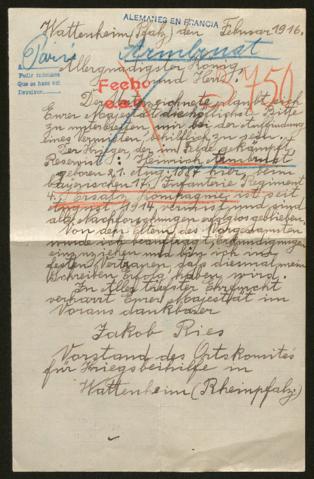 ALEMANES EN FRANCIA
Wattenheim (Pfalz) den Februar 1916.
Paris Armbrust
Pedir informes
Que se hace eso
Devolver
Allergnädigster König
und Herr!
Fecho
3750
Der Unterzeichnete erlaubt sich
Eurer Majestät die höflichste Bitte
zu unterbreiten, mir bei der Auffindung
eines Vermißten behilflich zu sein.
Der Krieger der im Felde gekämpft
Reservist: Heinrich Armbrust
geboren 21. Aug. 1887 hier, beim
bayerischen 17. Infanterie Regiment
4. Ersatz Kompagnie, ist seit
August 1914 vermißt und sind
alle Nachforschungen erfolglos geblieben.
Von den Eltern des Vorgenannten
wurde ich beauftragt Erkundigungen
einzuziehen und bin ich im
festen Vertrauen, daß diesmal mein
Schreiben Erfolg haben wird.
In Aller tiefster Ehrfurcht
verharrt Eurer Majestät im
Voraus dankbarer
Jakob Ries
Vorstand des Ortskomités
für Kriegsbeihilfe in
Wattenheim (Rheinpfalz)